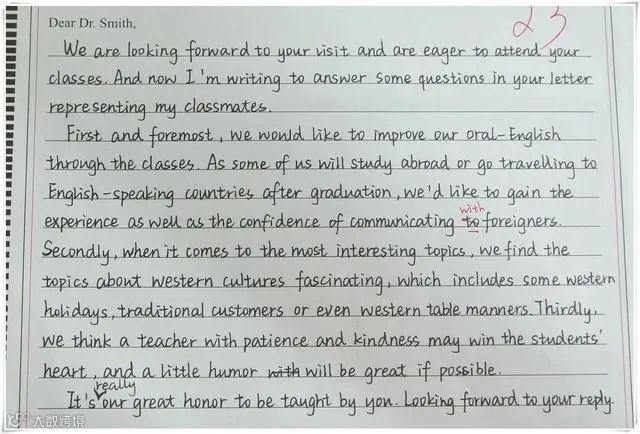 23
Dear Dr. Smith,
We are looking forward to your visit and are eager to attend your
classes. And now I'm writing to answer some questions in your letter
representing my classmates.
First and foremost, we would like to improve our oral-English
through the classes. As some of us will study abroad or go travelling to
English-speaking countries after graduation, we'd like to gain the
with
experience as well as the confidence of communicating to foreigners.
Secondly, when it comes to the most interesting topics, we find the
topics about western cultures fascinating, which includes some western
holidays, traditional customers or even western table manners. Thirdly,
we think a teacher with patience and kindness may win the students'
heart, and a little humor with will be great if possible.
really
It's our great honor to be taught by you. Looking forward to your reply.
大数跨境